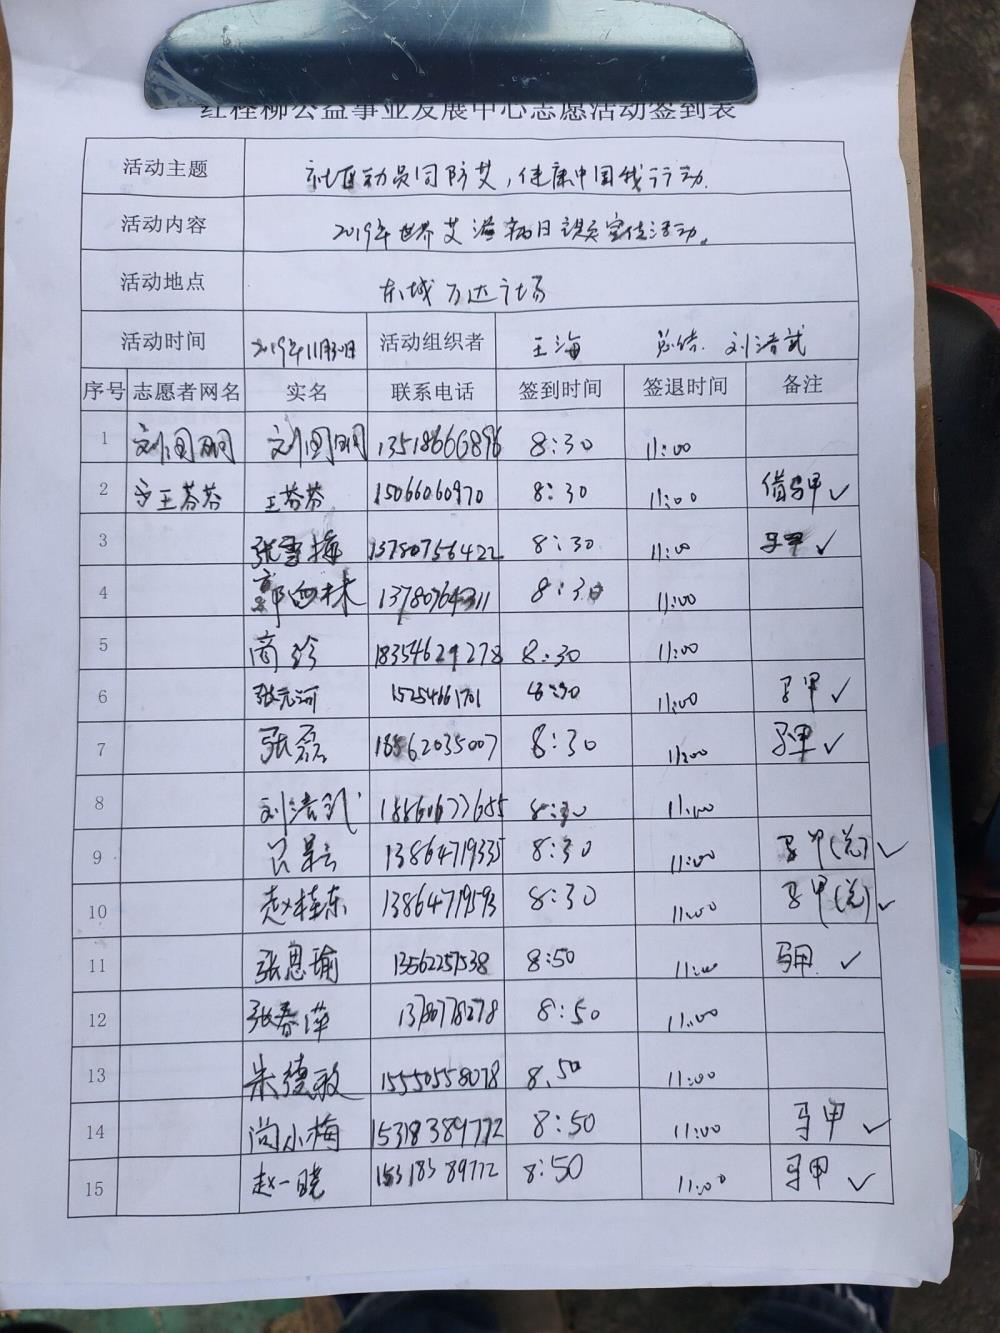 红柽柳公益事业发展中心志愿活动签到表
活动主题 社区动员同防艾，健康中国我行动.
活动内容 2019年世界艾滋病日 宣传活动。
活动地点 东城万达广场
活动时间 2019年11月30日 活动组织者 王海 总结. 刘洁武
序号 志愿者网名 实名 联系电话 签到时间 签退时间 备注
1 刘国明 刘国明 13518666896 8:30 11:00
2 王芬芬 王芬芬 15066060970 8:30 11:00 借马甲 ✓
3 张雪梅 13780756422 8:30 11:00 马甲 ✓
4 郭西林 8:30 11:00
5 商珍 18354629278 8:30 11:00
6 张元河 15254661701 8:30 11:00 马甲 ✓
7 张磊 18562035007 8:30 11:00 马甲 ✓
8 8:30 11:00
9 13864719335 8:30 11:00 马甲 ✓
10 赵桂东 13864719593 8:30 11:00 马甲 ✓
11 张思瑜 13562257538 8:50 11:00 马甲 ✓
12 张春萍 8:50 11:00
13 朱德敏 15550558078 8.50 11:00
14 尚小梅 15318389772 8:50 11:00 马甲 ✓
15 赵一晓 15318389772 8:50 11:00 马甲 ✓